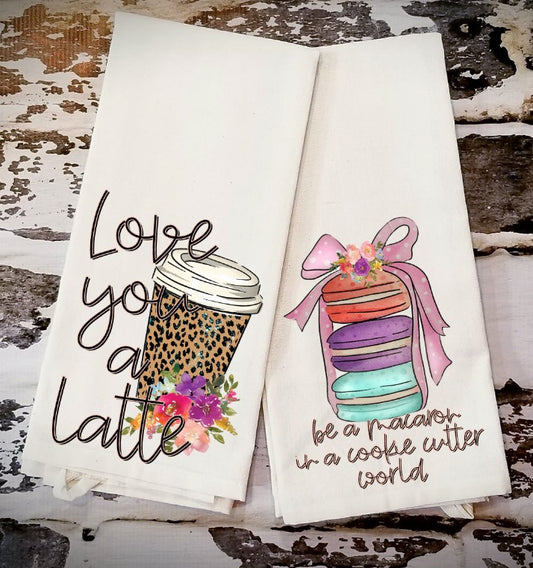 Love
you
a
latte
be a macaron
in a cookie cutter
world